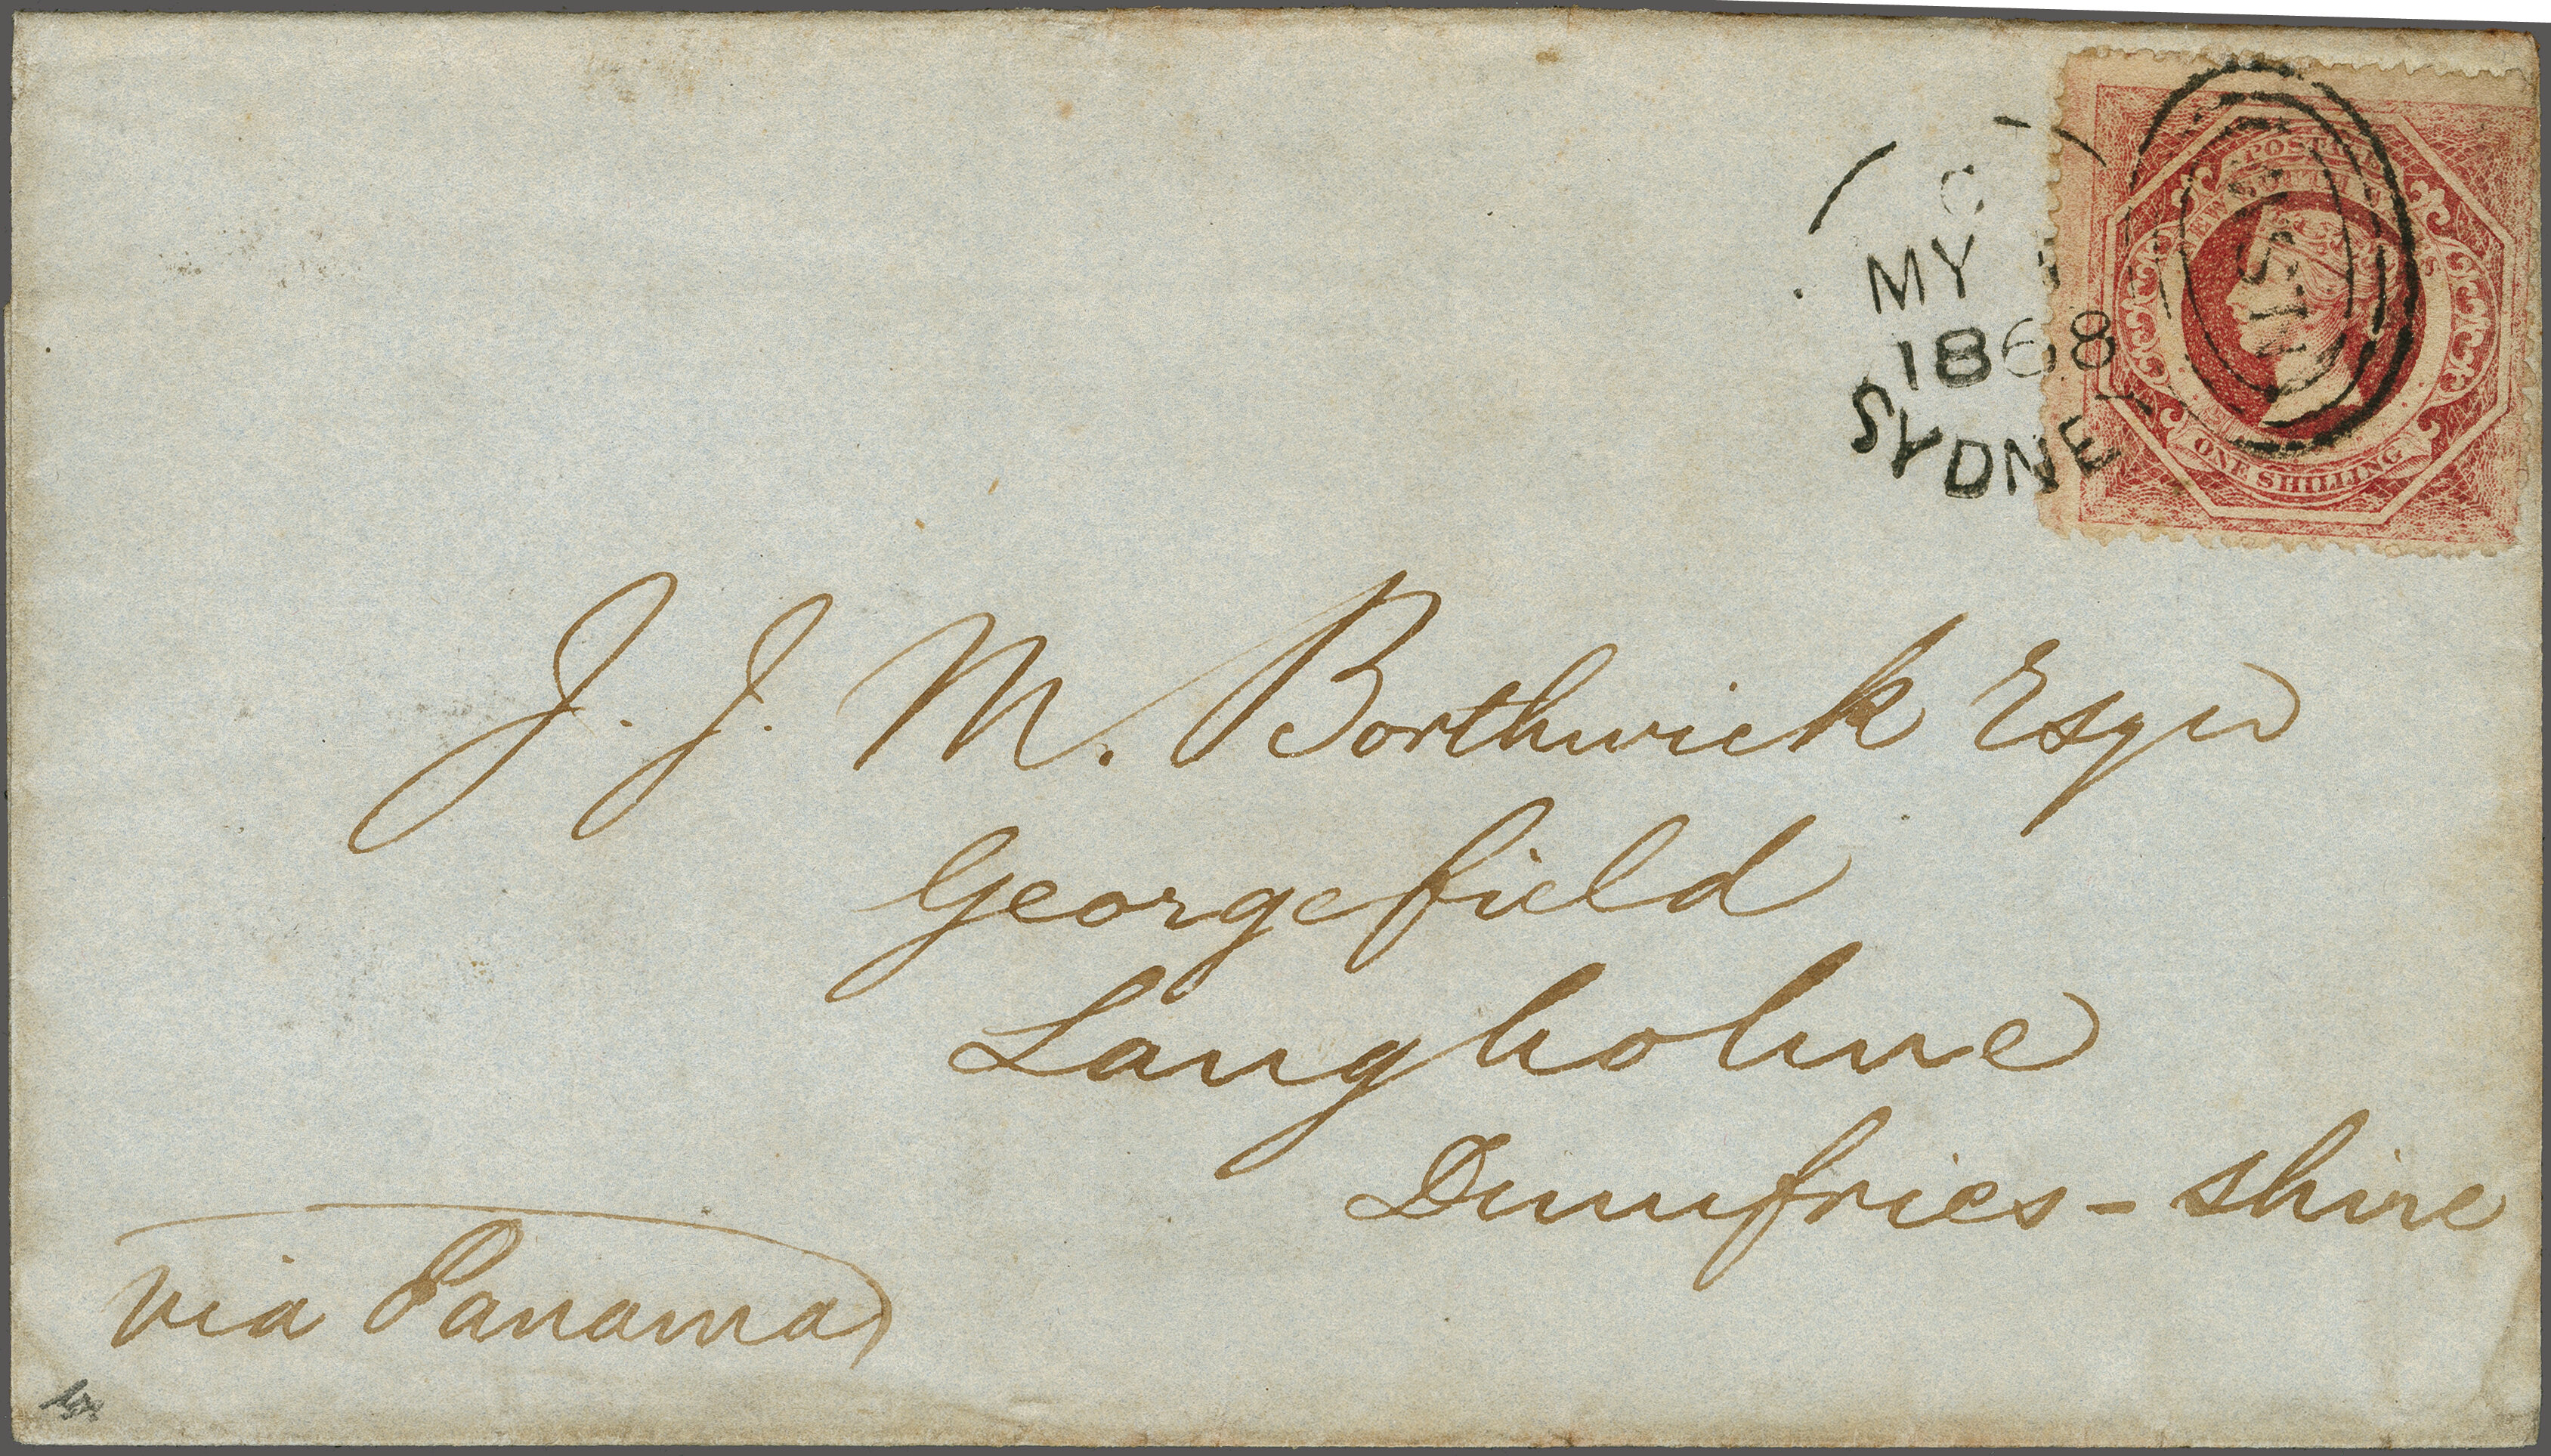 POSTAGE
NEW SOUTH WALES
ONE SHILLING
C
MY
1868
SYDNEY
NSW
J. J. M. Borthwick Esqre
Georgefield
Langholme
Dumfries-shire
via Panama